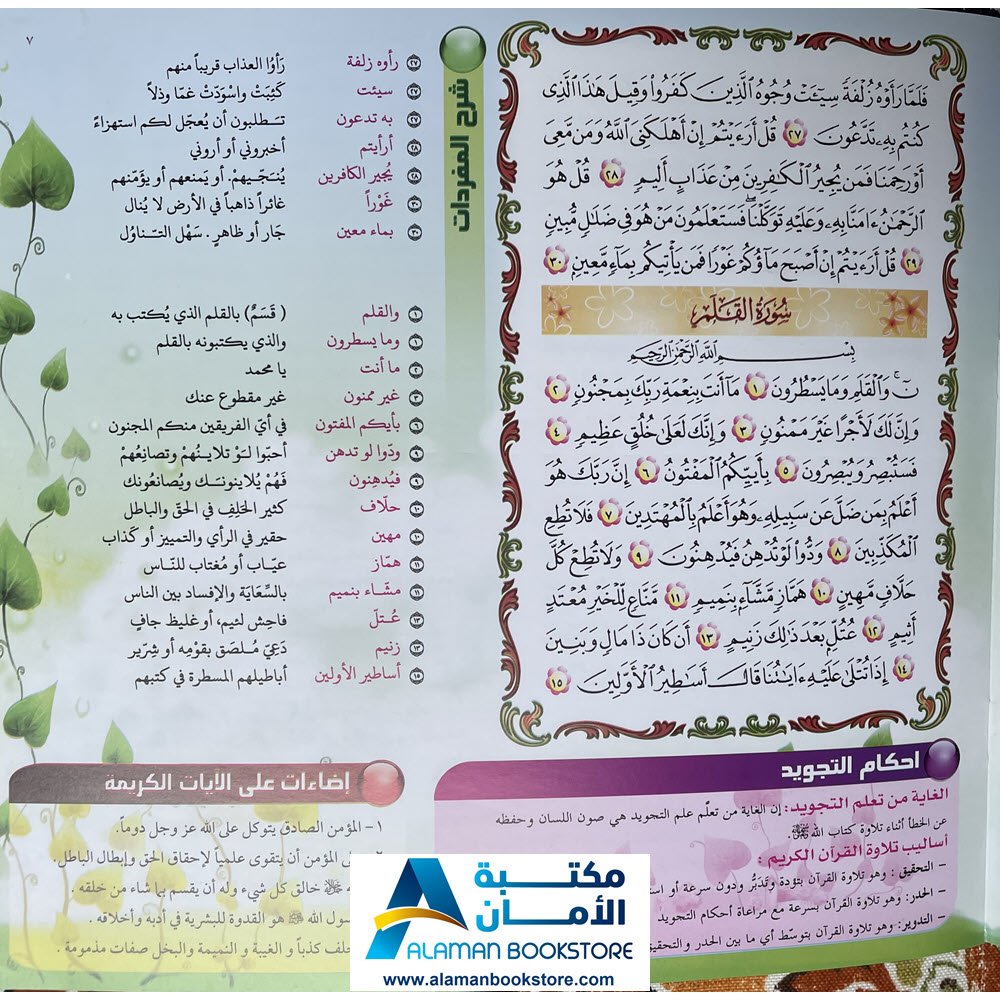 ٧
فَلَمَّا رَأَوْهُ زُلْفَةً سِيٓـَٔتْ وُجُوهُ ٱلَّذِينَ كَفَرُوا۟ وَقِيلَ هَٰذَا ٱلَّذِى
كُنتُم بِهِۦ تَدَّعُونَ ٢٧ قُلْ أَرَءَيْتُمْ إِنْ أَهْلَكَنِىَ ٱللَّهُ وَمَن مَّعِىَ
أَوْ رَحِمَنَا فَمَن يُجِيرُ ٱلْكَٰفِرِينَ مِنْ عَذَابٍ أَلِيمٍ ٢٨ قُلْ هُوَ
ٱلرَّحْمَٰنُ ءَامَنَّا بِهِۦ وَعَلَيْهِ تَوَكَّلْنَا ۖ فَسَتَعْلَمُونَ مَنْ هُوَ فِى ضَلَٰلٍ مُّبِينٍ
٢٩ قُلْ أَرَءَيْتُمْ إِنْ أَصْبَحَ مَآؤُكُمْ غَوْرًا فَمَن يَأْتِيكُم بِمَآءٍ مَّعِينٍۭ ٣٠
سُورَةُ القَلَمِ
بِسْمِ ٱللَّهِ ٱلرَّحْمَٰنِ ٱلرَّحِيمِ
نٓ ۚ وَٱلْقَلَمِ وَمَا يَسْطُرُونَ ١ مَآ أَنتَ بِنِعْمَةِ رَبِّكَ بِمَجْنُونٍ ٢
وَإِنَّ لَكَ لَأَجْرًا غَيْرَ مَمْنُونٍ ٣ وَإِنَّكَ لَعَلَىٰ خُلُقٍ عَظِيمٍ ٤
فَسَتُبْصِرُ وَيُبْصِرُونَ ٥ بِأَييِّكُمُ ٱلْمَفْتُونُ ٦ إِنَّ رَبَّكَ هُوَ
أَعْلَمُ بِمَن ضَلَّ عَن سَبِيلِهِۦ وَهُوَ أَعْلَمُ بِٱلْمُهْتَدِينَ ٧ فَلَا تُطِعِ
ٱلْمُكَذِّبِينَ ٨ وَدُّوا۟ لَوْ تُدْهِنُ فَيُدْهِنُونَ ٩ وَلَا تُطِعْ كُلَّ
حَلَّافٍ مَّهِينٍ ١٠ هَمَّازٍ مَّشَّآءٍۭ بِنَمِيمٍ ١١ مَّنَّاعٍ لِّلْخَيْرِ مُعْتَدٍ
أَثِيمٍ ١٢ عُتُلٍّۭ بَعْدَ ذَٰلِكَ زَنِيمٍ ١٣ أَن كَانَ ذَا مَالٍ وَبَنِينَ
١٤ إِذَا تُتْلَىٰ عَلَيْهِ ءَايَٰتُنَا قَالَ أَسَٰطِيرُ ٱلْأَوَّلِينَ ١٥
شرح المفردات
٢٧ رأوه زلفة رَأَوُا العذاب قريباً منهم
٢٧ سيئت كَئِبَتْ واسْوَدَّتْ غمّا وذلاً
٢٧ به تدعون تـطلبون أن يُعجّل لكم استهزاءً
٢٨ أرأيتم أخبروني أو أروني
٢٨ يُجير الكافرين يُنـَجّـيهمْ. أو يَمنعهم أو يؤَمّنهم
٣٠ غَوْراً غائراً ذاهباً في الأرض لا يُنال
٣٠ بماء معين جَار أو ظاهرٍ . سَهْل التـناوُل
١ والقلم ( قَسَمٌ) بالقلم الذي يُكتب به
١ وما يسطرون والذي يكتبونه بالقلم
٢ ما أنت يا محمد
٣ غير ممنون غير مقطوع عنك
٦ بأيكم المفتون في أيّ الفريقين منكم المجنون
٩ ودّوا لو تدهن أحبّوا لـَوْ تلايـنـُهمْ وتصانِعُهمْ
٩ فيُدهِنون فَهُمْ يُلاينونـَك ويُصانعُونك
١٠ حلّاف كثير الحَلِفِ في الحقّ والباطل
١٠ مهين حقير في الرأي والتمييز أو كَذاب
١١ همّاز عيّاب أو مُغتاب للنّاس
١١ مشّاء بنميم بالسَّعَايَة والإفساد بين الناس
١٣ عُـتلّ فاحِش لئيم، أو غليظ جافٍ
١٣ زنيم دَعِيّ مُـلصَق بقوْمِه أو شِرّير
١٥ أساطير الأولين أباطيلهم المسطرة في كتبهم
احكام التجويد
الغاية من تعلم التجويد: إن الغاية من تعلّم علم التجويد هي صون اللسان وحفظه
عن الخطأ أثناء تلاوة كتاب الله ﷻ.
أساليب تلاوة القرآن الكريم :
– التحقيق : وهو تلاوة القرآن بتؤدة وتَدَبُّر ودون سرعة أو
– الحدر: وهو تلاوة القرآن بسرعة مع مراعاة أحكام التجويد
– التدوير: وهو تلاوة القرآن بتوسّط أي ما بين الحدر والتحقيق
إضاءات على الآيات الكريمة
١– المؤمن الصادق يتوكل على الله عز وجل دوماً.
المؤمن أن يتقوى علمياً لإحقاق الحق وإبطال الباطل.
ﷻ خالق كل شيء وله أن يقسم بما شاء من خلقه .
الله ﷺ هو القدوة للبشرية في أدبه وأخلاقه .
كذباً و الغيبة و النميمة والبخل صفات مذمومة .
مكتبة
الأمان
ALAMAN BOOKSTORE
www.alamanbookstore.com